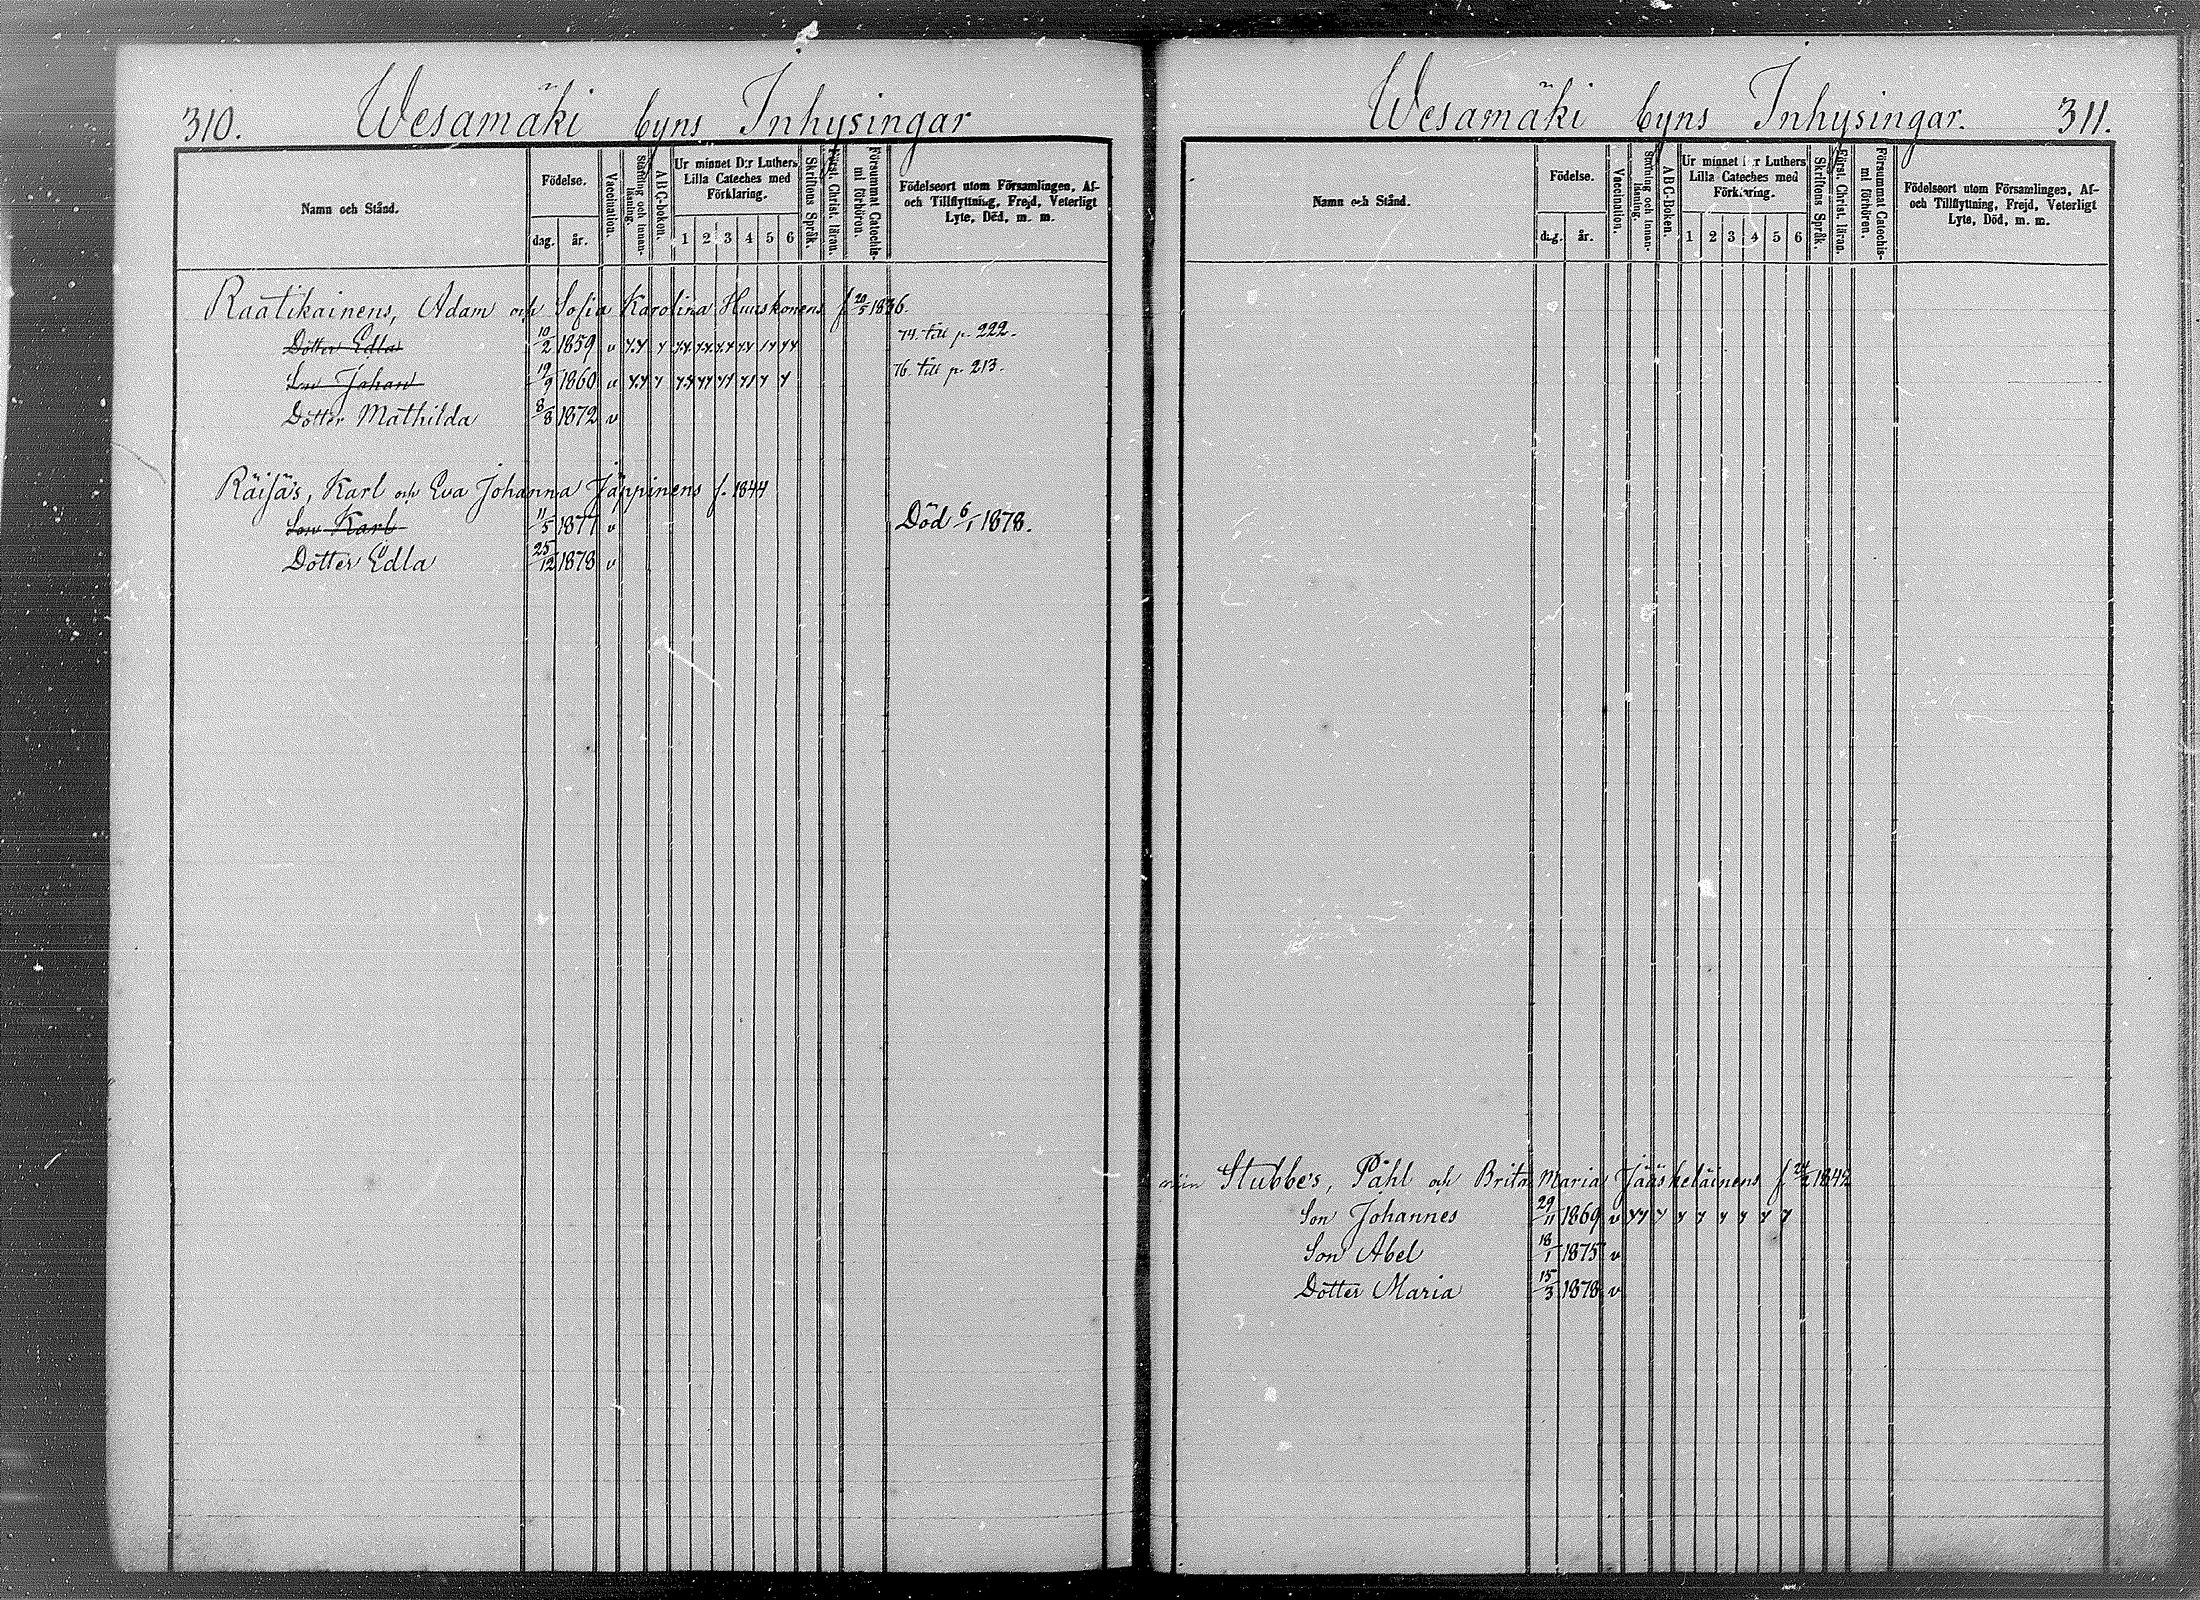 310. Wesamäki byns Inhysingar
Namn och Stånd.
Födelse.
dag. år.
Vaccination.
Stafning och Innan-
läsning.
A B C-boken.
Ur minnet D:r Luthers
Lilla Cateches med
Förklaring.
1 2 3 4 5 6
Skriftens Språk.
Först. Christ. läran.
Försummat Catechis-
mi förhören.
Födelseort utom Församlingen, Af-
och Tillflyttning, Frejd, Veterligt
Lyte, Död, m. m.
Raatikainens, Adam och Sofia Karolina Huuskonens f. 20/5 1836.
Dotter Edla 10/2 1859 v 74. till p. 222.
Son Johan 19/9 1860 v 76. till p. 213.
Dotter Mathilda 8/8 1872 v
Räisä's, Karl och Eva Johanna Jäppinens f. 1844
Son Karl 11/5 1877 v Död 6/1 1878.
Dotter Edla 25/12 1878 v
Wesamäki byns Inhysingar. 311.
Namn och Stånd.
Födelse.
dag. år.
Vaccination.
Stafning och Innan-
läsning.
A B C-Boken.
Ur minnet D:r Luthers
Lilla Cateches med
Förklaring.
1 2 3 4 5 6
Skriftens Språk.
Först. Christ. läran.
Försummat Catechis-
mi förhören.
Födelseort utom Församlingen, Af-
och Tillflyttning, Frejd, Veterligt
Lyte, Död, m. m.
Stubbe's, Påhl och Brita Maria Jääskeläinens f. 24/2 1842
Son Johannes 29/11 1869 v
Son Abel 18/1 1875 v
Dotter Maria 15/3 1878 v